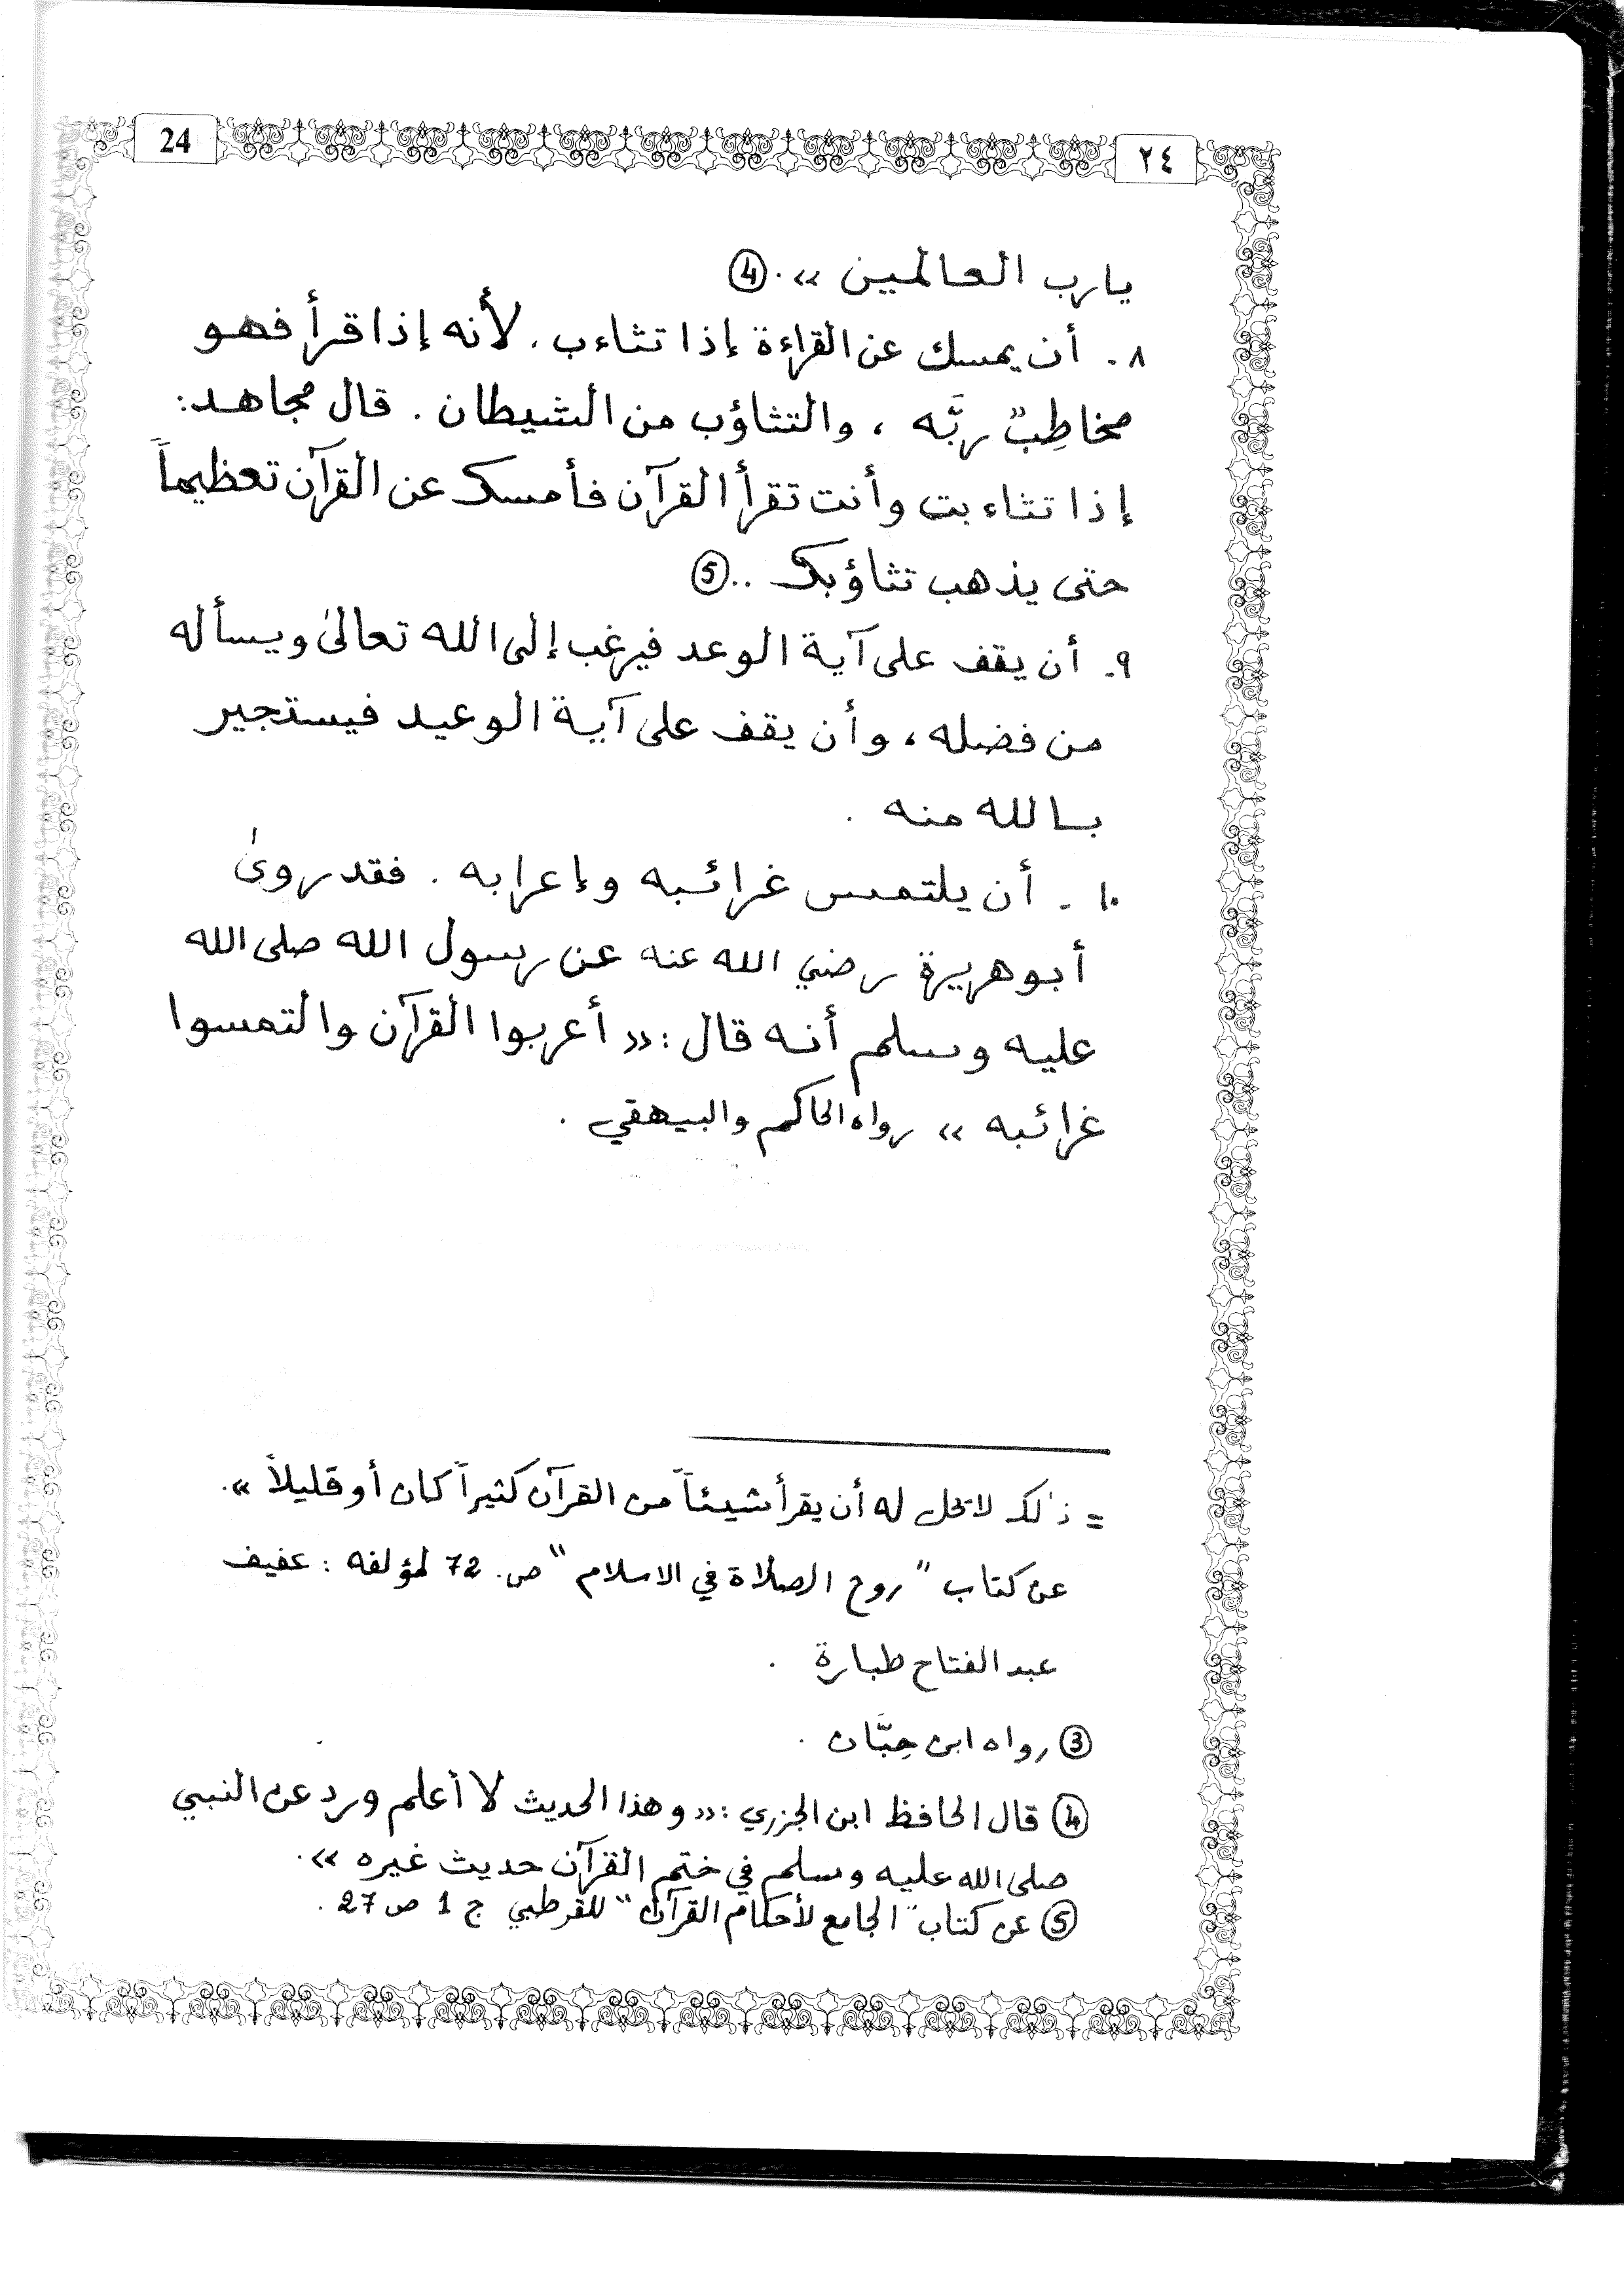 24
٢٤
يارب العالمين ». ④
٨ - أن يمسك عن القراءة إذا تثاءب . لأنه إذا قرأ فهو
مخاطِبٌ ربَّه ، والتثاؤب من الشيطان . قال مجاهد:
إذا تثاءبت وأنت تقرأ القرآن فأمسك عن القرآن تعظيماً
حتى يذهب تثاؤبك .. ⑤
٩- أن يقف على آية الوعد فيرغب إلى الله تعالىٰ ويسأله
من فضله ، وأن يقف على آية الوعيد فيستجير
بالله منه .
١٠ - أن يلتمس غرائبه وإعرابه . فقد روىٰ
أبو هريرة رضي الله عنه عن رسول الله صلى الله
عليه وسلم أنه قال : « أعربوا القرآن والتمسوا
غرائبه » رواه الحاكم والبيهقي .
= ذٰلك لا يحل له أن يقرأ شيئاً من القرآن كثيراً كان أو قليلاً ».
عن كتاب " روح الصلاة في الاسلام " ص. 72 لمؤلفه : عفيف
عبد الفتاح طبارة .
③ رواه ابن حِبَّان .
④ قال الحافظ ابن الجزري : « وهذا الحديث لا أعلم ورد عن النبي
صلى الله عليه وسلم في ختم القرآن حديث غيره ».
⑤ عن كتاب " الجامع لأحكام القرآن " للقرطبي ج 1 ص 27 .